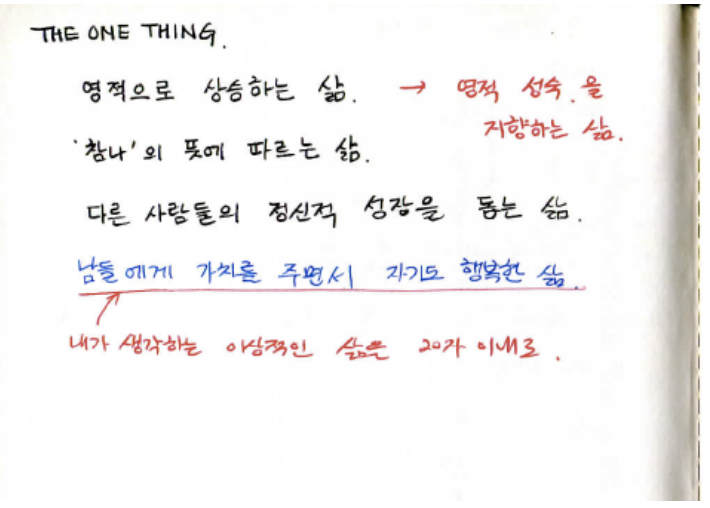 THE ONE THING.
영적으로 상승하는 삶. → 영적 성숙.을
지향하는 삶.
'참나'의 뜻에 따르는 삶.
다른 사람들의 정신적 성장을 돕는 삶.
남들에게 가치를 주면서 자기도 행복한 삶.
내가 생각하는 이상적인 삶을 20자 이내로.